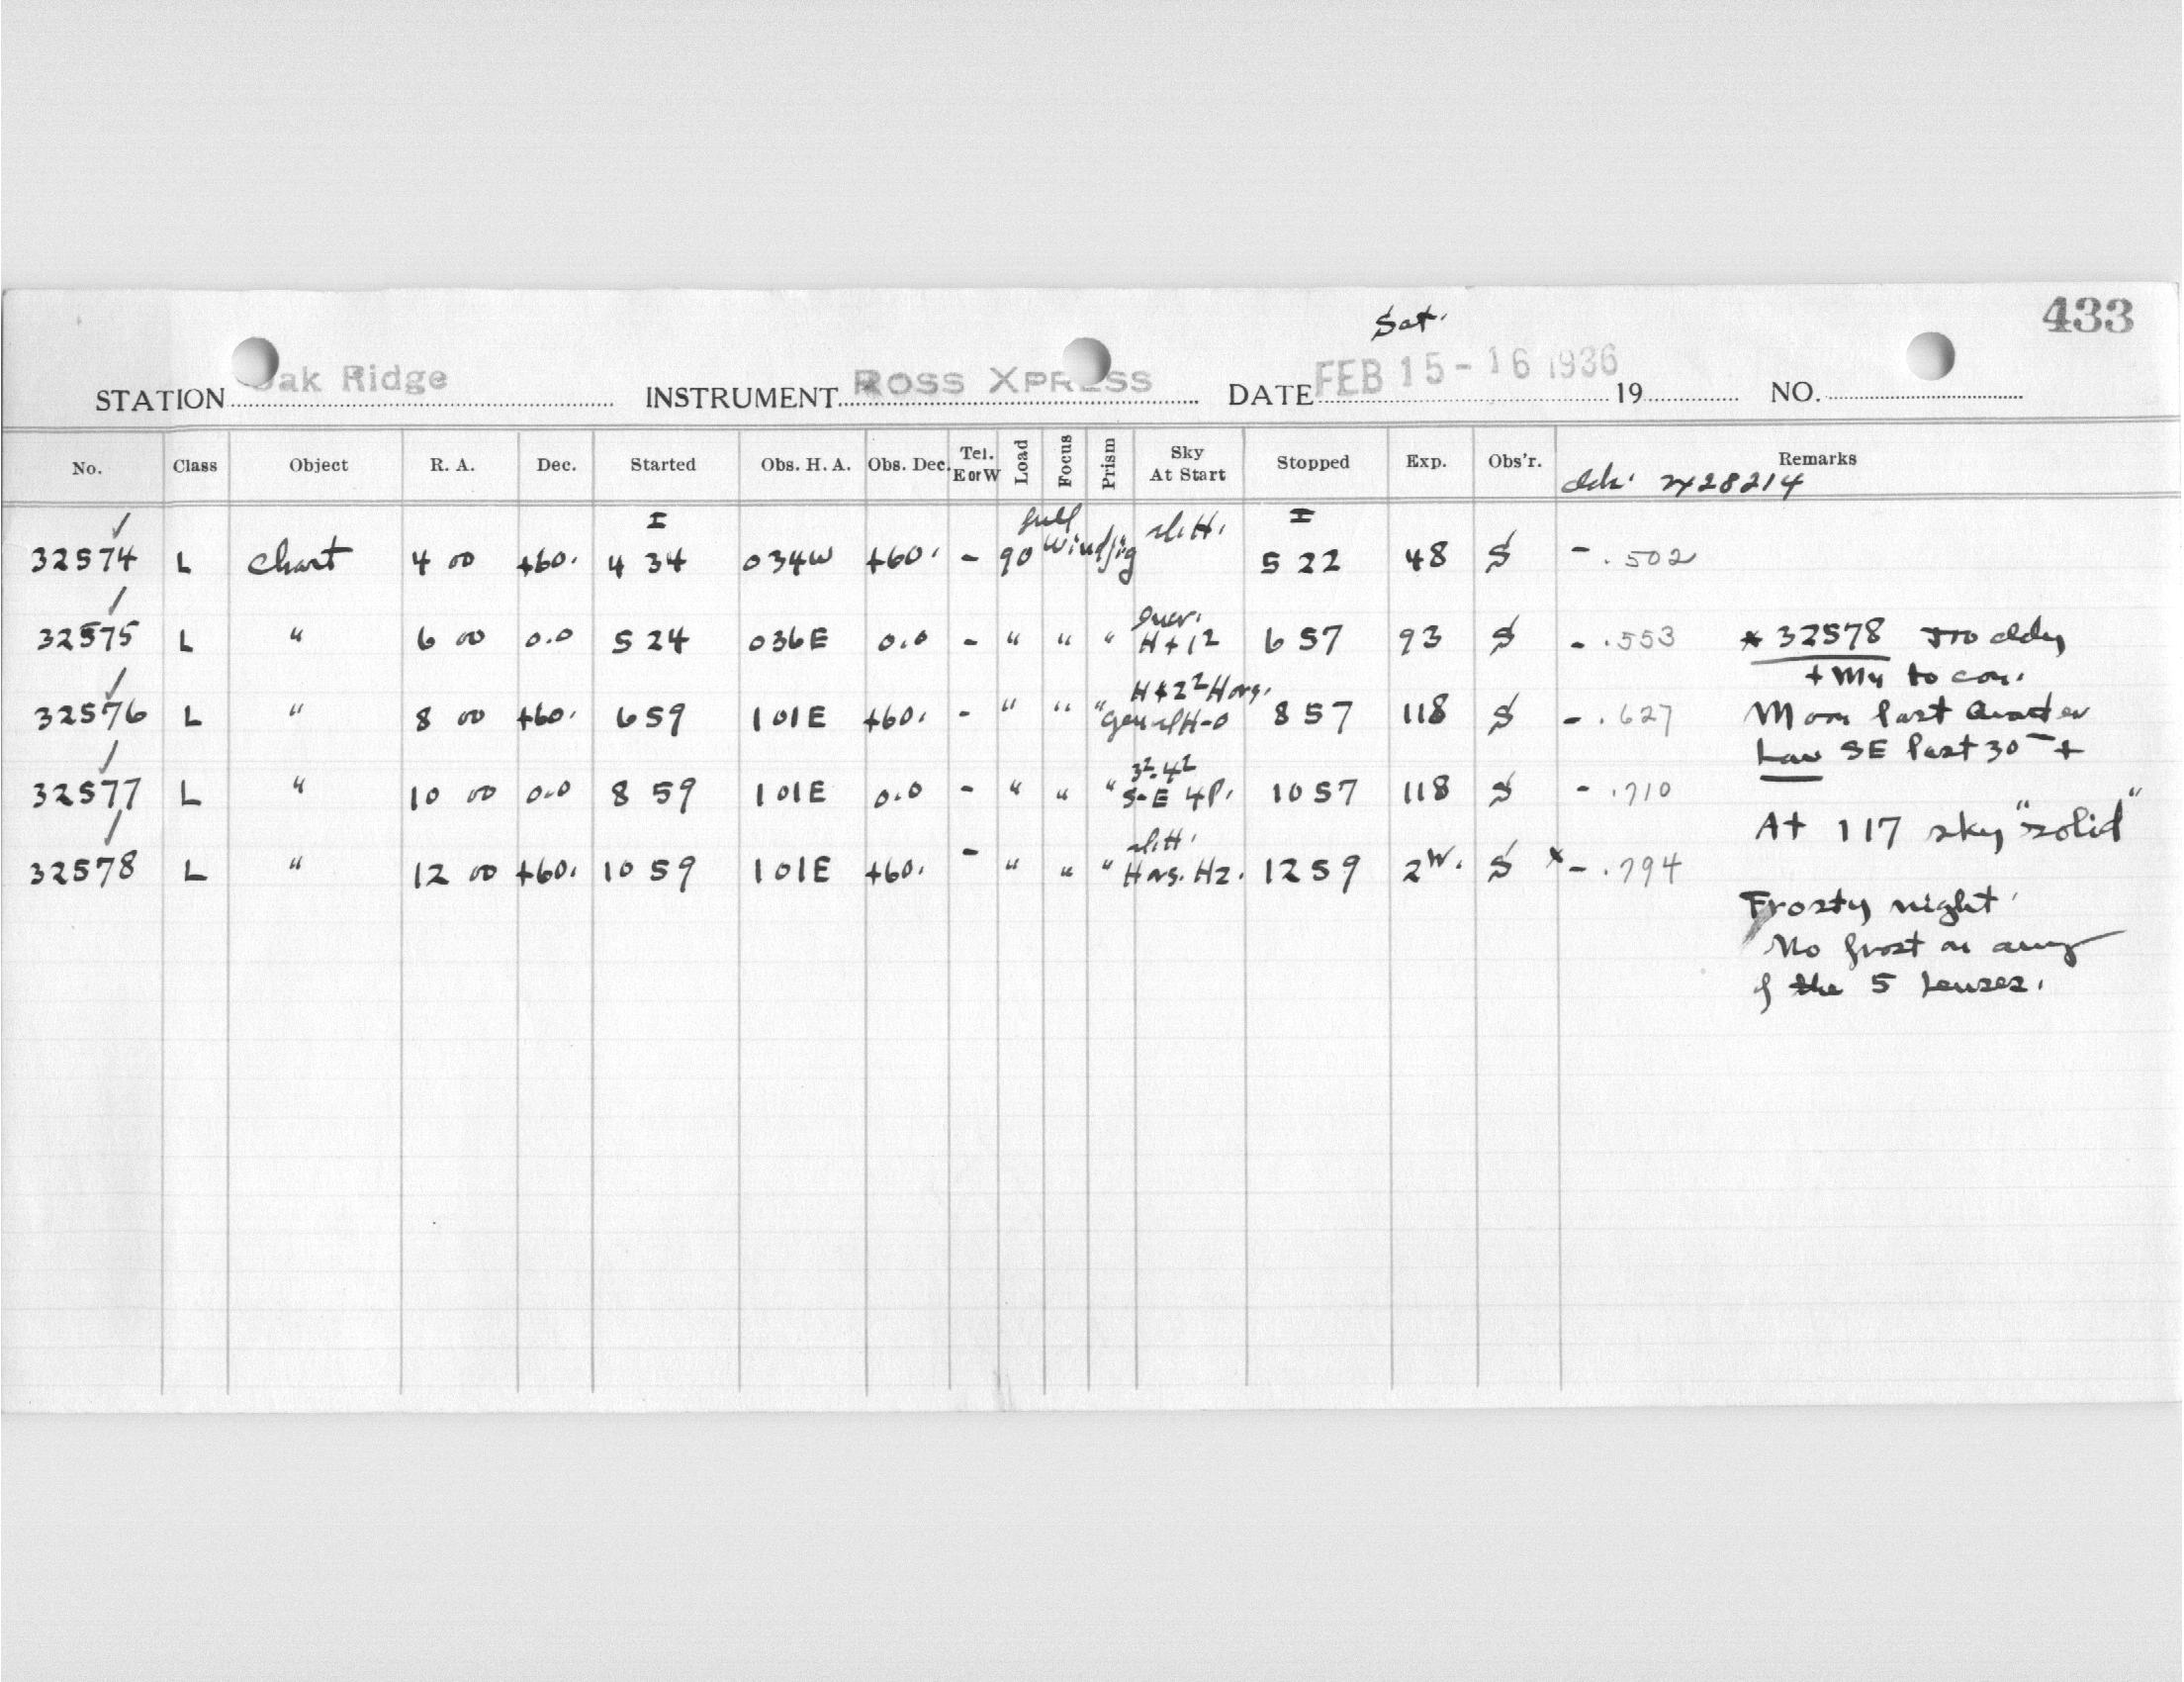 433
Sat.
STATION Oak Ridge INSTRUMENT ROSS XPRESS DATE FEB 15-16 1936 19 NO.
No. Class Object R. A. Dec. Started Obs. H. A. Obs. Dec. Tel. E or W Load Focus Prism Sky At Start Stopped Exp. Obs'r. Remarks
2428214
I full I
32574 L Chart 4 00 +60. 4 34 034W +60. - 90 Wind/jig sl. H. 5 22 48 S - .502
32575 L " 6 00 0.0 5 24 036E 0.0 - " " " H+1² 6 57 93 S - .553
32576 L " 8 00 +60. 6 59 101E +60. - " " " H+2² 8 57 118 S - .627
32577 L " 10 00 0.0 8 59 101E 0.0 - " " " 3²-4² S-E 4P. 10 57 118 S - .710
32578 L " 12 00 +60. 10 59 101E +60. - " " " sl. H. Hz. 12 59 2 S * - .794
* 32578
to
Moon last Quarter
Low SE last 30
At 117 sky "solid"
Frosty night
No frost on any
of the 5 lenses.